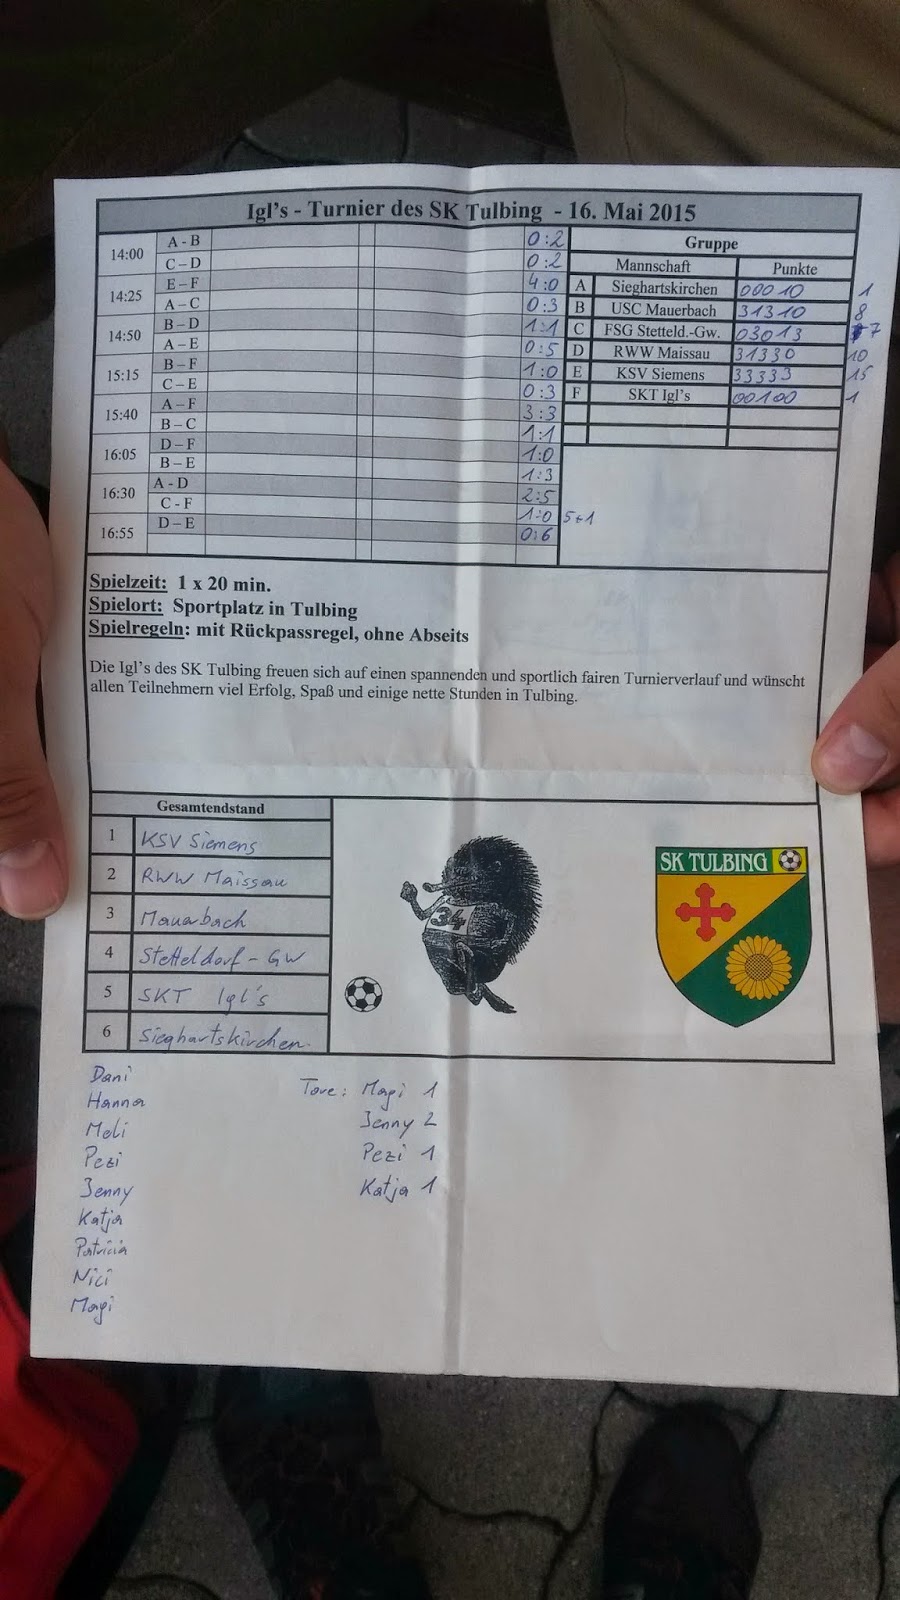 Igl's - Turnier des SK Tulbing - 16. Mai 2015
14:00 A - B 0:2
C – D 0:2
14:25 E – F 4:0
A – C 0:3
14:50 B – D 1:1
A – E 0:5
15:15 B – F 1:0
C – E 0:3
15:40 A – F 3:3
B – C 1:1
16:05 D – F 1:0
B – E 1:3
16:30 A - D 2:5
C - F 1:0 5+1
16:55 D – E 0:6
Gruppe
Mannschaft Punkte
A Sieghartskirchen 00010 1
B USC Mauerbach 31310 8
C FSG Stetteld.-Gw. 03013 7
D RWW Maissau 31330 10
E KSV Siemens 33333 15
F SKT Igl's 00100 1
Spielzeit: 1 x 20 min.
Spielort: Sportplatz in Tulbing
Spielregeln: mit Rückpassregel, ohne Abseits
Die Igl's des SK Tulbing freuen sich auf einen spannenden und sportlich fairen Turnierverlauf und wünscht
allen Teilnehmern viel Erfolg, Spaß und einige nette Stunden in Tulbing.
Gesamtendstand
1 KSV Siemens
2 RWW Maissau
3 Mauerbach
4 Stetteldorf - GW
5 SKT Igl's
6 Sieghartskirchen.
34
SK TULBING
Dani
Hanna
Meli
Pezi
Jenny
Katja
Patricia
Nici
Magi
Tore: Magi 1
Jenny 2
Pezi 1
Katja 1